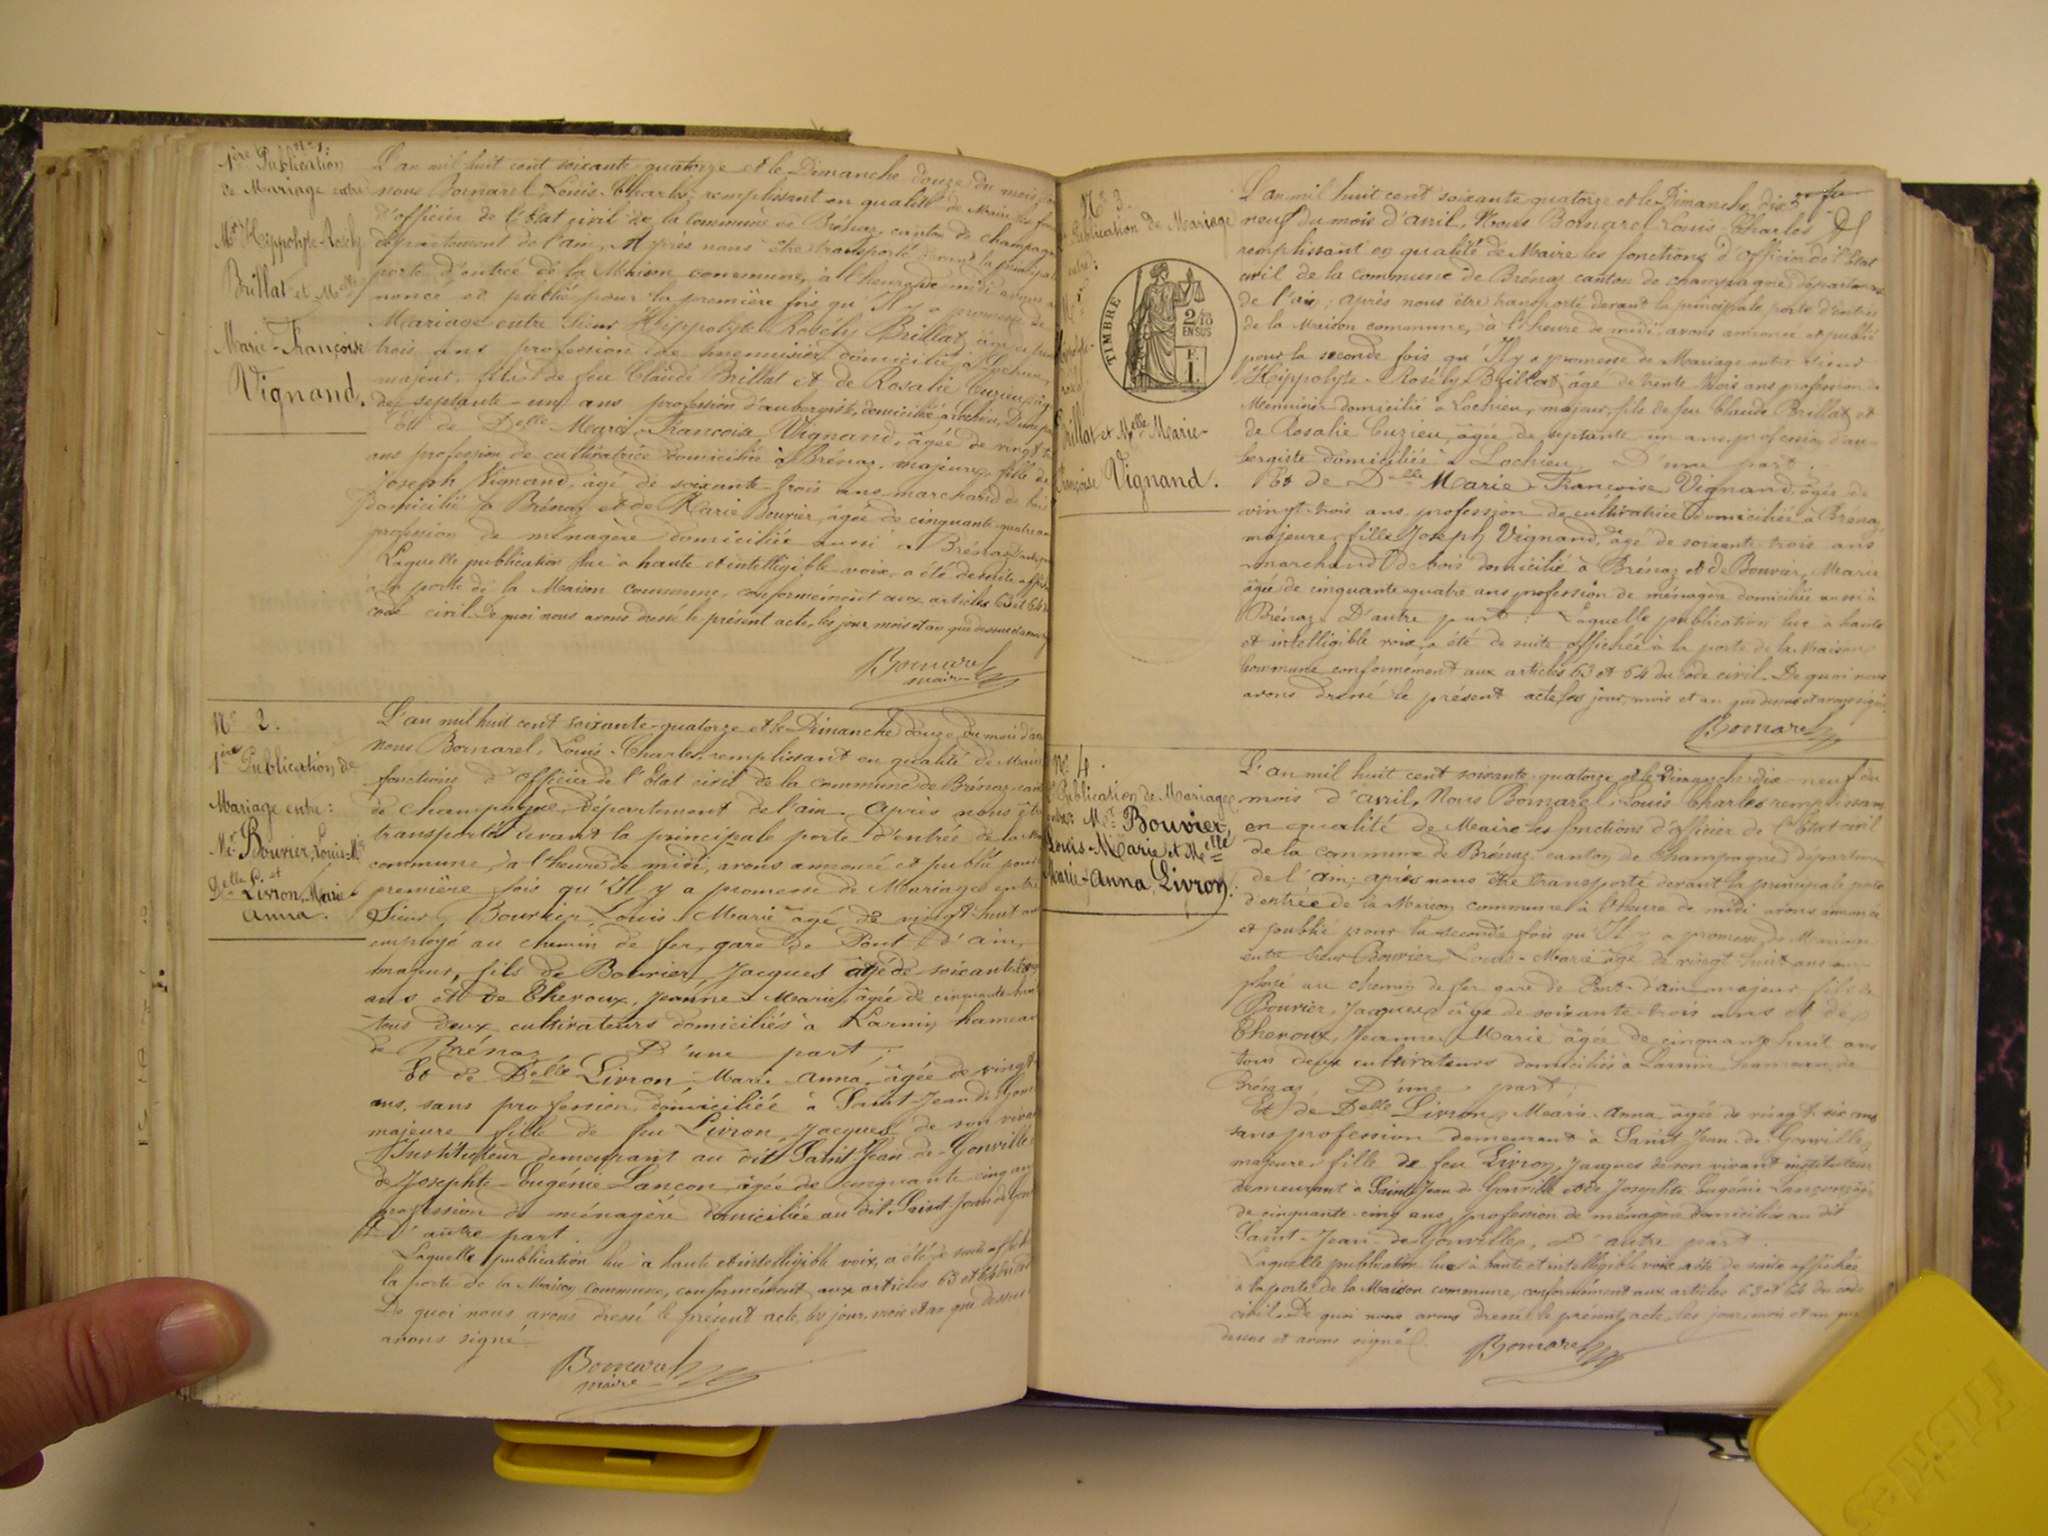 N° 1.
1ère Publication
de Mariage entre
Mr Hippolyte-Rosély
Brillat et Melle
Marie-Françoise
Vignand.
L'an mil huit cent soixante-quatorze et le Dimanche douze du mois
nous Bornarel Louis-Charles, remplissant en qualité de Maire les
d'officier de l'Etat civil de la Commune de Brénaz, canton de champagne
département de l'ain, Après nous être transporté devant la principale
porte d'entrée de la Maison commune, à l'heure de midi avons
noncé et publié pour la première fois qu'Il y a promesse de
Mariage entre Sieur Hippolyte-Rosély Brillat, âgé de
trois ans profession de menuisier domicilié à Lochieu,
majeur, fils de feu Claude Brillat et de Rosalie Cuzieu
de septante-un ans profession d'aubergiste, domiciliée à Lochieu, D'une part
Et de Delle Marie-Françoise Vignand, âgée de vingt
ans profession de cultivatrice domiciliée à Brénaz, majeure, fille de
Joseph Vignand, âgé de soixante-trois ans marchand de bois
domicilié à Brénaz et de Marie Bouvier, âgée de cinquante-quatre ans
profession de ménagère domiciliée aussi à Brénaz
Laquelle publication lue à haute et intelligible voix, a été de suite
à la porte de la Maison commune, conformément aux articles 63 et 64
code civil. De quoi nous avons dressé le présent acte, les jour mois et an que dessus
Bornarel
maire
N° 2.
1ère Publication de
Mariage entre:
Mr Bouvier, Louis-Mie
et
Delle Livron, Marie
Anna.
L'an mil huit cent soixante-quatorze et le Dimanche douze du mois
Nous Bornarel, Louis-Charles, remplissant en qualité de Maire
fonctions d'officier de l'Etat civil de la commune de Brénaz,
de champagne, département de l'ain. Après nous être
transporté devant la principale porte d'entrée de la
commune, à l'heure de midi, avons annoncé et publié pour
première fois qu'Il y a promesse de Mariage entre
Sieur Bouvier, Louis-Marie âgé de vingt-huit ans
employé au chemin de fer, gare de Pont-d'ain,
majeur, fils de Bouvier, Jacques âgé de soixante
ans et de Theroux, Jeanne-Marie, âgée de cinquante
tous deux cultivateurs domiciliés à Larnin hameau
de Brénaz D'une part;
Et de Delle Livron Marie-Anna, âgée de vingt
ans, sans profession, domiciliée à Saint-Jean de
majeure fille de feu Livron, Jacques de son vivant
Instituteur demeurant au dit Saint Jean de-Gonville
de Josephte-Eugénie Lançon âgée de cinquante cinq ans
profession de ménagère domiciliée au dit Saint-Jean de
D'autre part.
Laquelle publication lue à haute et intelligible voix, a été de suite
la porte de la Maison commune, conformément aux articles 63 et 64
De quoi nous avons dressé le présent acte, les jour, mois et an que dessus
avons signé
Bornarel
maire
N° 3.
Publication de Mariage
entre:
Mr
Hippolyte-
Brillat et Melle Marie-
Françoise Vignand.
TIMBRE
2/10
EN SUS
L'an mil huit cent soixante quatorze et le Dimanche dix
neuf du mois d'avril, Nous Bornarel Louis-Charles
remplissant en qualité de Maire les fonctions d'officier de l'Etat
civil de la commune de Brénaz canton de champagne département
de l'ain; après nous être transporté devant la principale porte d'entrée
de la Maison commune, à l'heure de midi, avons annoncé et publié
pour la seconde fois qu'Il y a promesse de Mariage entre Sieur
Hippolyte-Rosély Brillat, âgé de trente trois ans profession de
Menuisier domicilié à Lochieu, majeur, fils de feu Claude Brillat et
de Rosalie Cuzieu, âgée de septante-un ans profession d'au-
bergiste domiciliée à Lochieu, D'une part.
Et de Delle Marie-Françoise Vignand, âgée de
vingt-trois ans, profession de cultivatrice domiciliée à Brénaz,
majeure, fille Joseph Vignand, âgé de soixante-trois ans
marchand de bois domicilié à Brénaz et de Bouvier, Marie
âgée de cinquante-quatre ans profession de ménagère domiciliée aussi à
Brénaz D'autre part: Laquelle publication lue à haute
et intelligible voix, a été de suite affichée à la porte de la Maison
commune conformément aux articles 63 et 64 du code civil. De quoi nous
avons dressé le présent acte, les jour, mois et an que dessus et avons signé
Bornarel
N° 4.
Publication de Mariage
entre Mr Bouvier,
Louis-Marie et Melle
Marie-Anna, Livron.
L'an mil huit cent soixante-quatorze et le Dimanche dix-neuf du
mois d'avril, Nous Bornarel, Louis Charles remplissant
en qualité de Maire les fonctions d'officier de l'Etat civil
de la commune de Brénaz canton de Champagne département
de l'ain; après nous être transporté devant la principale porte
d'entrée de la Maison commune à l'heure de midi avons annoncé
et publié pour la seconde fois qu'Il y a promesse de Mariage
entre Sieur Bouvier, Louis-Marie âgé de vingt huit ans em-
ployé au chemin de fer gare de Pont-d'ain majeur fils de
Bouvier, Jacques âgé de soixante-trois ans et de
Theroux, Jeanne-Marie âgée de cinquante huit ans
tous deux cultivateurs domiciliés à Larnin, hameau de
Brénaz, D'une part;
Et de Delle Livron, Marie-Anna, âgée de vingt-six ans
sans profession demeurant à Saint Jean de Gonville,
majeure fille de feu Livron, Jacques de son vivant instituteur
demeurant à Saint Jean de Gonville et de Josephte Eugénie Lançon âgée
de cinquante-cinq ans, profession de ménagère domiciliée au dit
Saint-Jean de Gonville, D'autre part.
Laquelle publication lue à haute et intelligible voix a été de suite affichée
à la porte de la Maison commune, conformément aux articles 63 et 64 du code
civil. De quoi nous avons dressé le présent acte, les jour, mois et an que
dessus et avons signé.
Bornarel